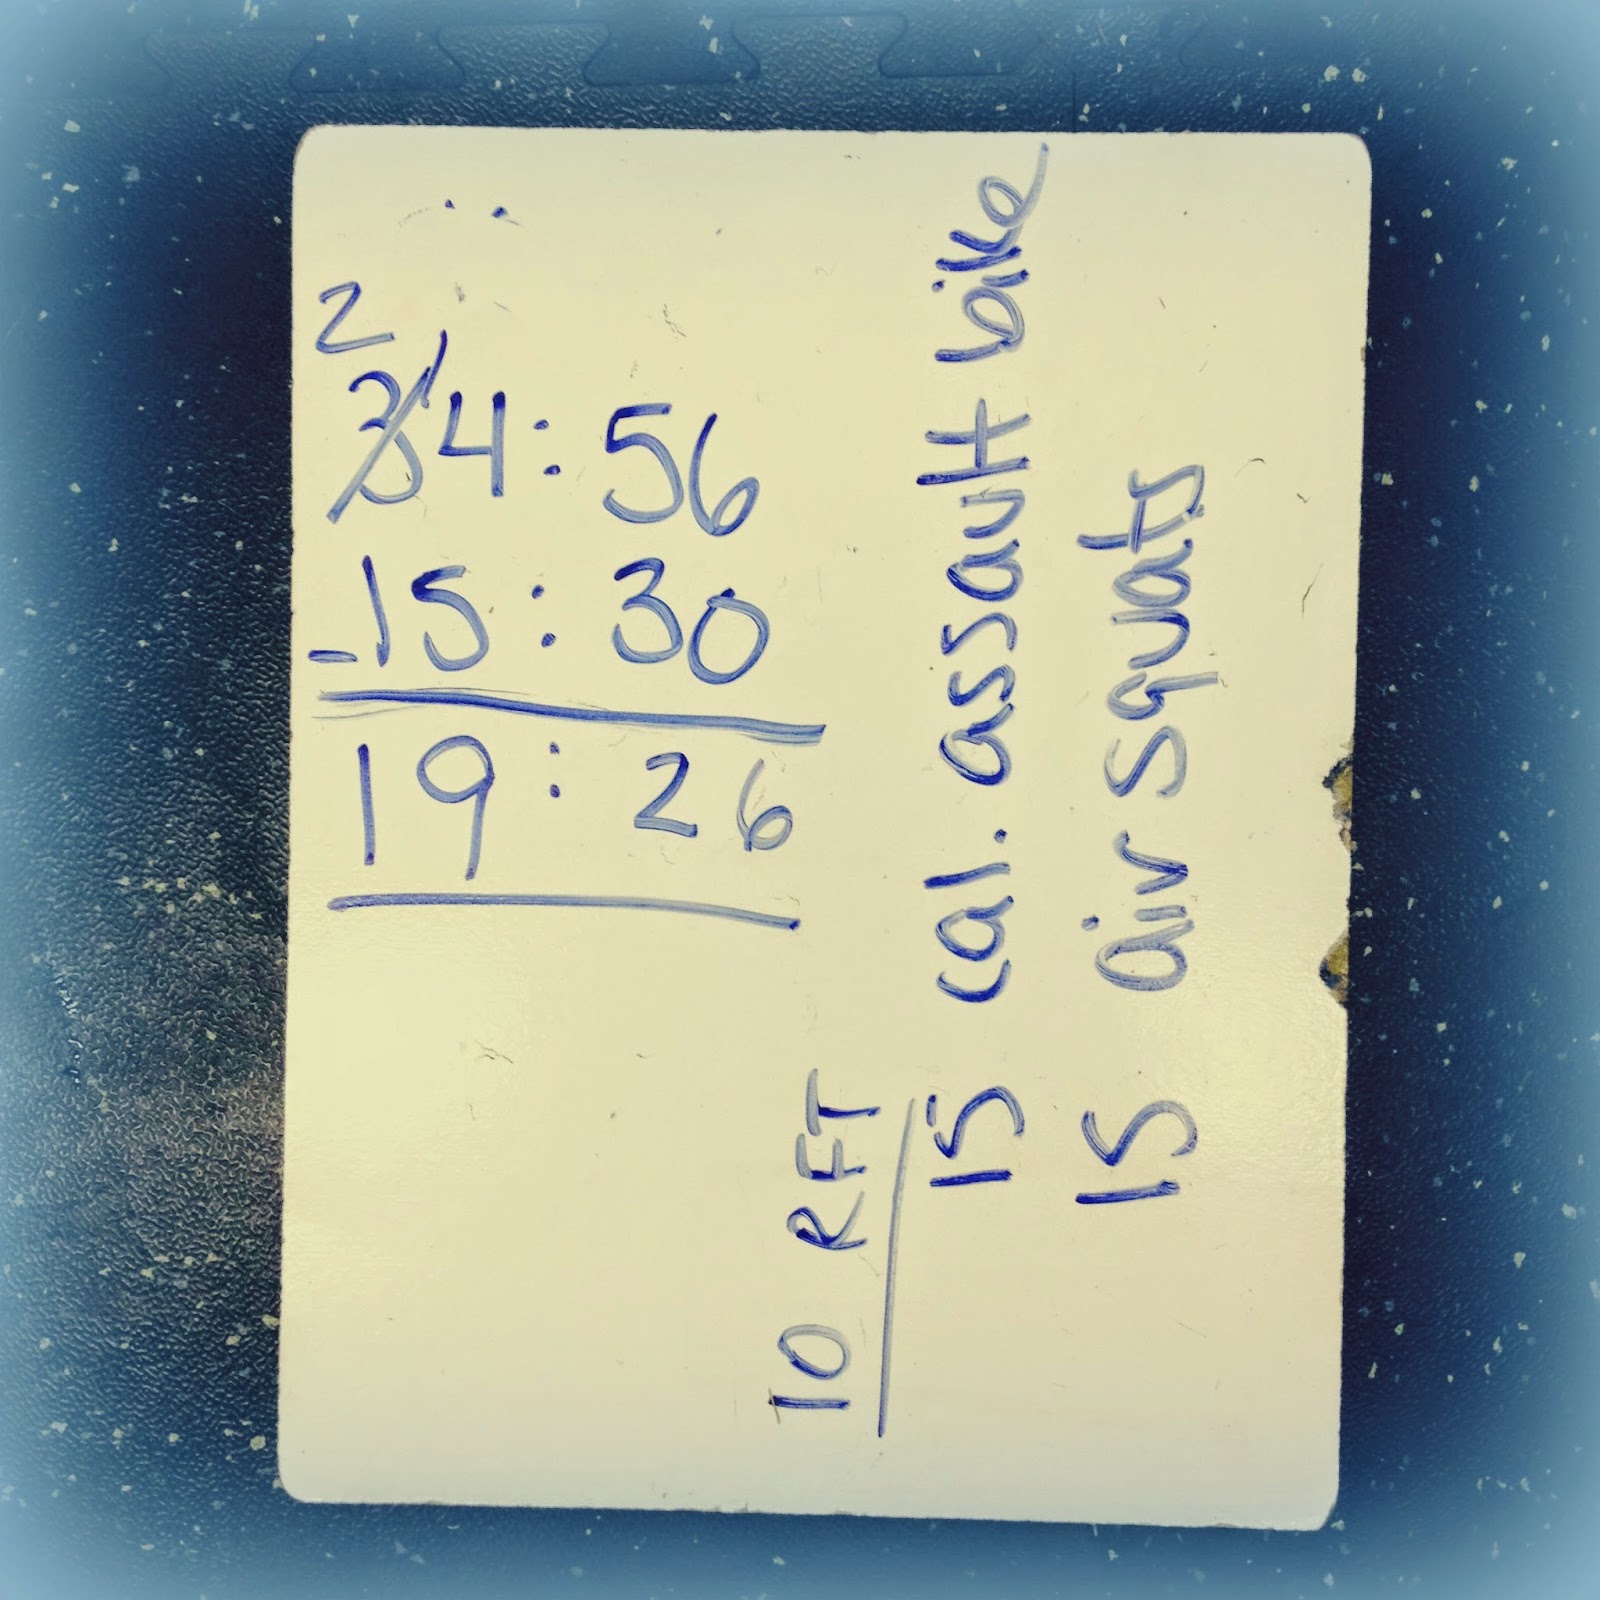 2
34:56
-15:30
19:26
10 RFT
15 cal. assault bike
15 air squats